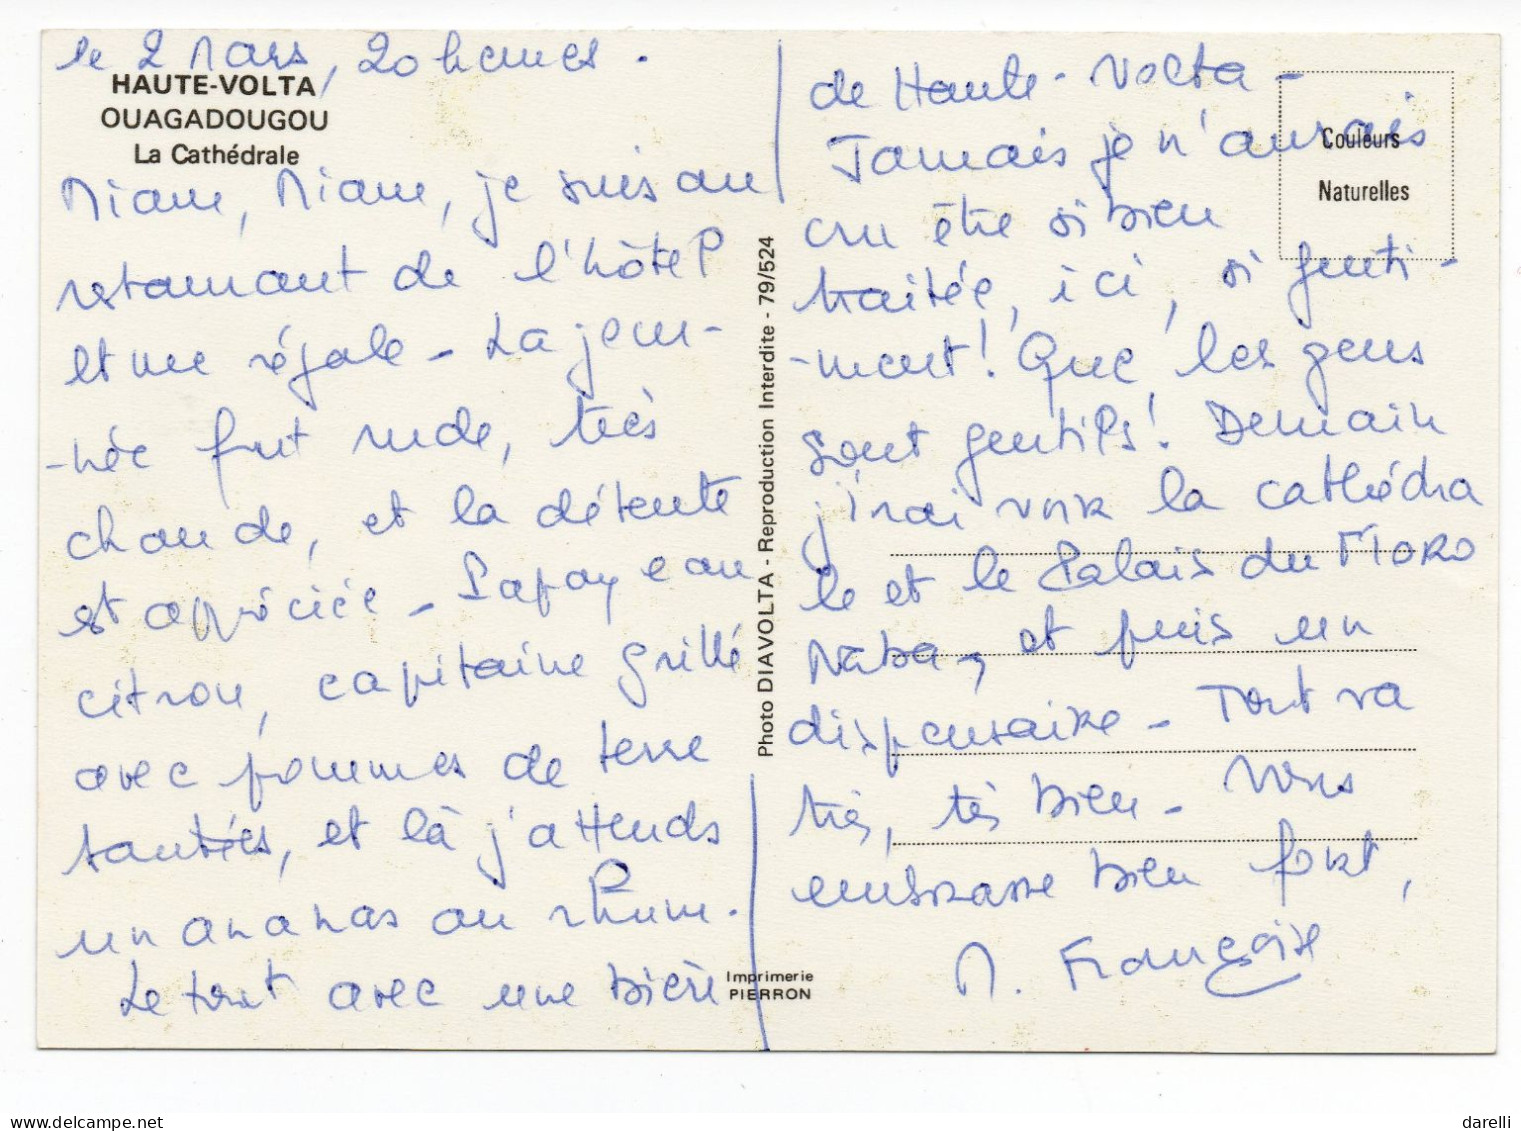 le 2 Mars, 20 heures.
HAUTE-VOLTA
OUAGADOUGOU
La Cathédrale
Miam, Miam, je suis au
restaurant de l'hôtel
et me régale - La jour-
-née fut rude, très
chaude, et la détente
est appréciée - Papaye au
citron, capitaine grillé
avec pommes de terre
sautées, et là j'attends
un ananas au rhum.
Le tout avec une bière
Photo DIAVOLTA - Reproduction Interdite - 79/524
Imprimerie
PIERRON
Couleurs
Naturelles
de Haute-Volta -
Jamais je n'aurais
cru être si bien
traitée, ici, si genti-
-ment! Que les gens
sont gentils! Demain
j'irai voir la cathédra
le et le Palais du MORO
Naba, et puis un
dispensaire - Tout va
très, très bien - Vous
embrasse bien fort,
M. Françoise
delcampe.net
darelli